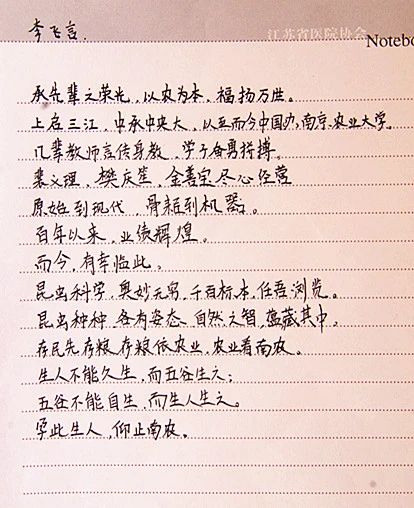 李飞言.
江苏省医院协会
Notebo
承先辈之荣光，以农为本，福扬万世。
上启三江，中承中央大，以至而今中国办，南京农业大学。
几辈教师言传身教，学子奋勇拼搏。
裴义理，樊庆笙，金善宝尽心经营
原始到现代，骨耜到机器。
百年以来，业绩辉煌。
而今，有幸临此。
昆虫科学，奥妙无穷，千百标本，任吾浏览。
昆虫种种，各有姿态，自然之智，蕴藏其中。
存民先存粮，存粮依农业，农业看南农。
生人不能久生，而五谷生之；
五谷不能自生，而生人生之。
孕此生人，仰止南农。